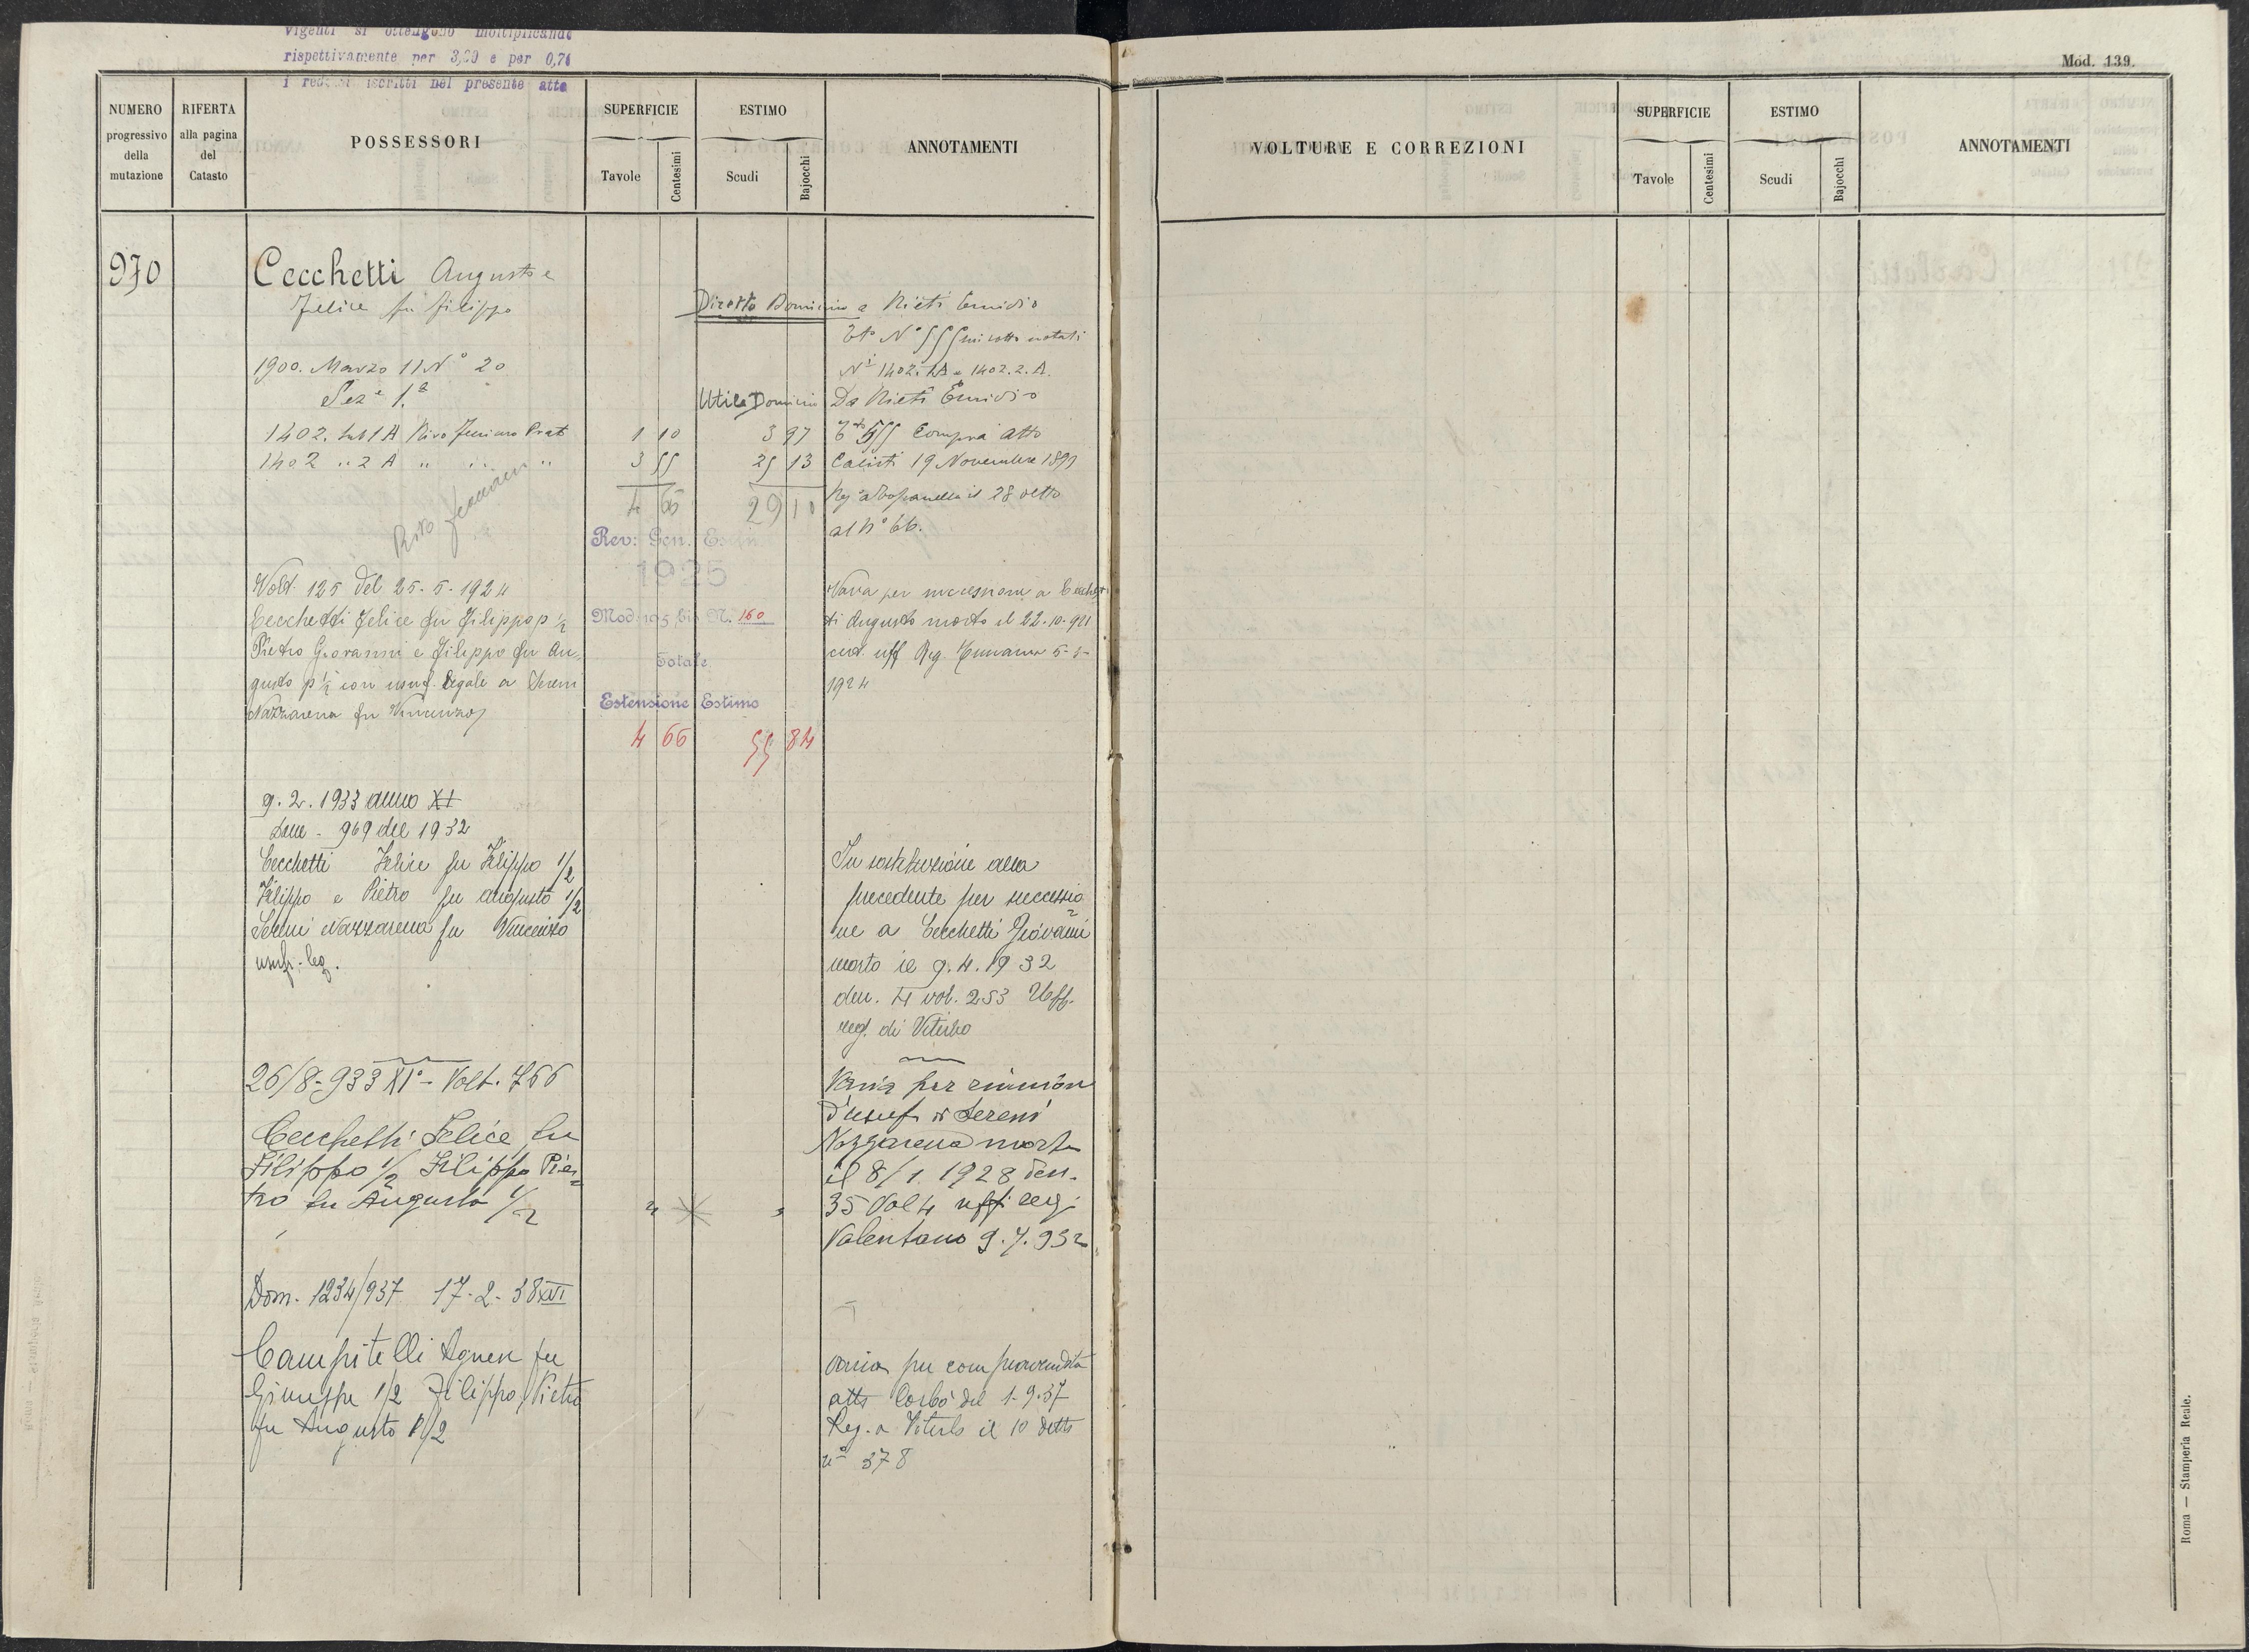 vigenti si ottengono moltiplicando
rispettivamente per e per
i iscritti nel presente atto
Mod. 139.
NUMERO progressivo della mutazione
RIFERTA alla pagina del Catasto
POSSESSORI
SUPERFICIE
Tavole
Centesimi
ESTIMO
Scudi
Bajocchi
ANNOTAMENTI
VOLTURE E CORREZIONI
SUPERFICIE
Tavole
Centesimi
ESTIMO
Scudi
Bajocchi
ANNOTAMENTI
970
Cecchetti Augusto e
Felice fu Filippo
1900. Marzo 11 N° 20
Sez.e 1.a
1402. sub 1 A Prat 1 10 3 97
1402 " 2 A " " " 3 55 25 13
4 65 29 10
Diretto Dominio a Rieti Emidio
notati
1402. 2. A.
Utile Domínio Da Rieti Emidio
Compra atto
Calisti 19 Novembre 1899
il 28 detto
al N° 66.
Rev: Gen. Estim.
1925
Mod. 195 bis N. 160
Totale
Estensione Estimo
4 66 55 84
Volt. 125 del 25-5-1924
Cecchetti Felice fu Filippo p 1/2
Pietro Giovanni e Filippo fu Au-
gusto p 1/2 con usuf. legale a Sereni
Nazzarena fu Vincenzo
Varia per successione a Cecchet-
ti Augusto morto il 22-10-921
uff Reg.
1924
9. 2. 1933 anno XI
969 del 1932
Cecchetti Felice fu Filippo 1/2
Filippo e Pietro fu Augusto 1/2
Sereni Nazzarena fu Vincenzo
usufr. leg.
In sostituzione alla
precedente per successio
ne a Cecchetti Giovanni
morto il 9. 4. 1932
den. 4 vol. 253 Uff.
reg. di Viterbo
26/8-933 XI° - Volt. 766
Cecchetti Felice fu
Filippo 1/2 Filippo Pie=
tro fu Augusto 1/2
Varia per riunione
d'usuf. di Sereni
Nazzarena morta
il 8/1. 1928 den.
35 Vol 4 uff. reg.
Valentano 9. 7. 932
Dom. 1234/937 17-2-38 XVI
Campitelli Agnese fu
Giuseppe 1/2 Filippo, Pietro
fu Augusto 1/2
Varia per compravendita
atto del 1-9-37
Reg. a Viterbo il 10 detto
n° 378
Roma — Stamperia Reale.